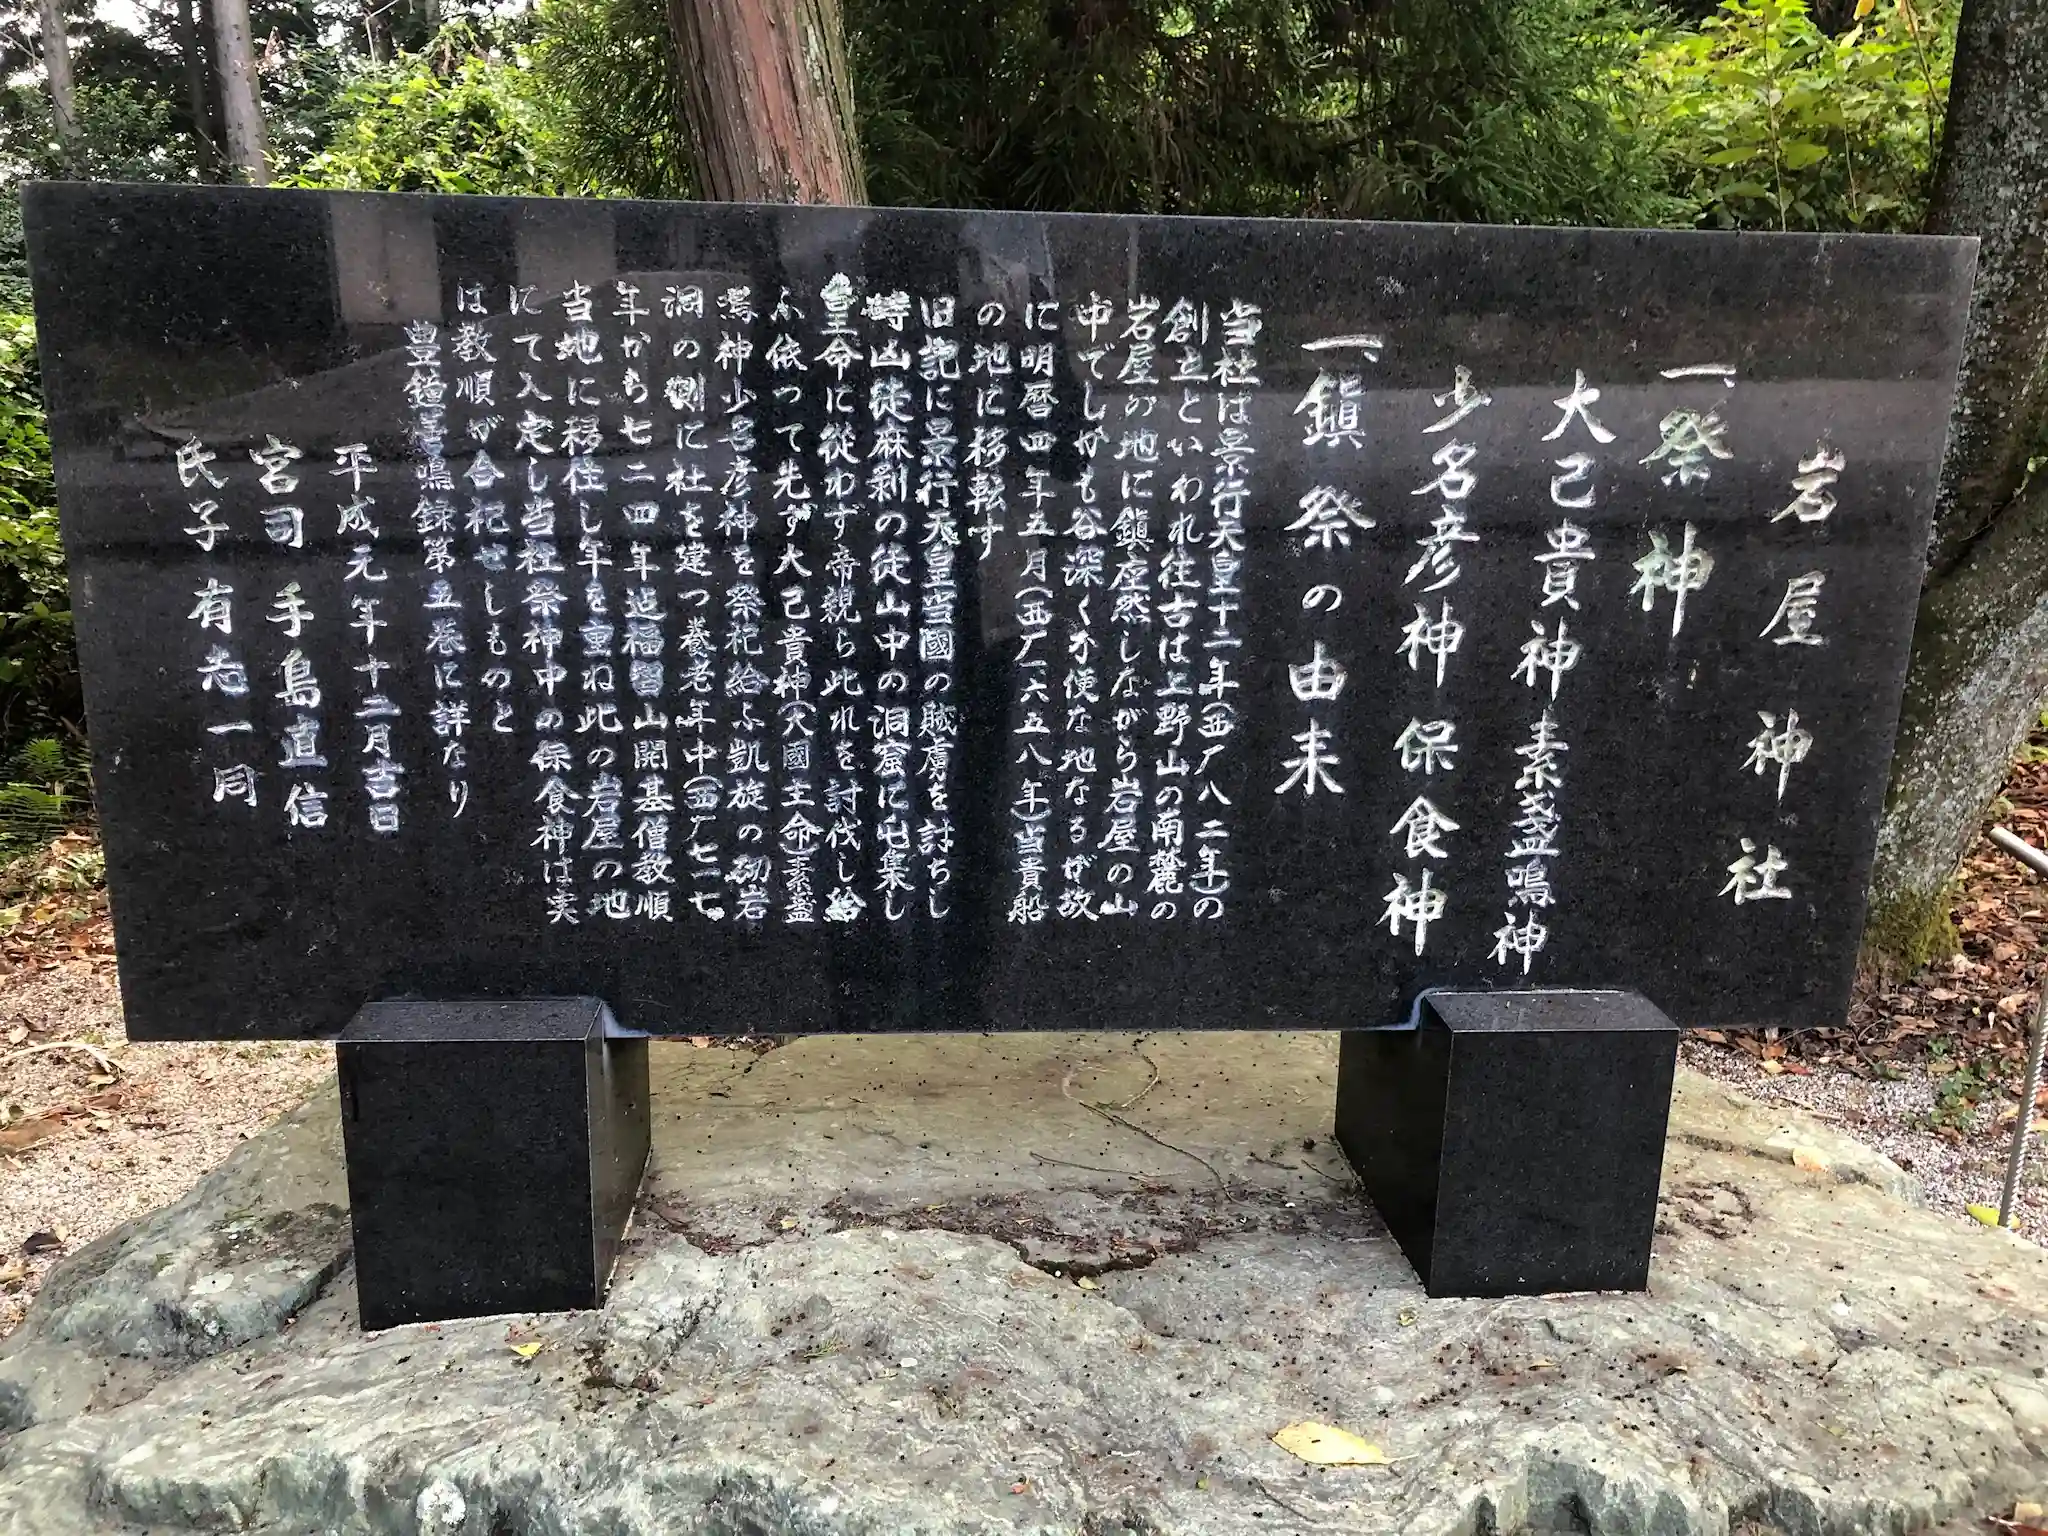 岩屋神社
一、祭神
大己貴神素盞鳴神
少名彦神保食神
一、鎭祭の由来
当社は景行天皇十二年(西厂八二年)の
創立といわれ往古は上野山の南麓の
岩屋の地に鎭座然しながら岩屋の山
中でしかも谷深く不便な地なるが故
に明暦四年五月(西厂一六五八年)当貴船
の地に移転す
旧記に景行天皇当國の賊虜を討ちし
時凶徒麻剥の徒山中の洞窟に屯集し
皇命に従わず帝親ら此れを討伐し給
ふ依って先ず大己貴神(大國主命)素盞
鳴神少名彦神を祭祀給ふ凱旋の砌岩
洞の側に社を建つ養老年中(西厂七一七
年から七二四年迄福智山開基僧教順
当地に移住し年を重ね此の岩屋の地
にて入定し当社祭神中の保食神は実
は教順が合祀せしものと
豊鐘善鳴録第五巻に詳なり
平成元年十二月吉日
宮司手島直信
氏子有志一同